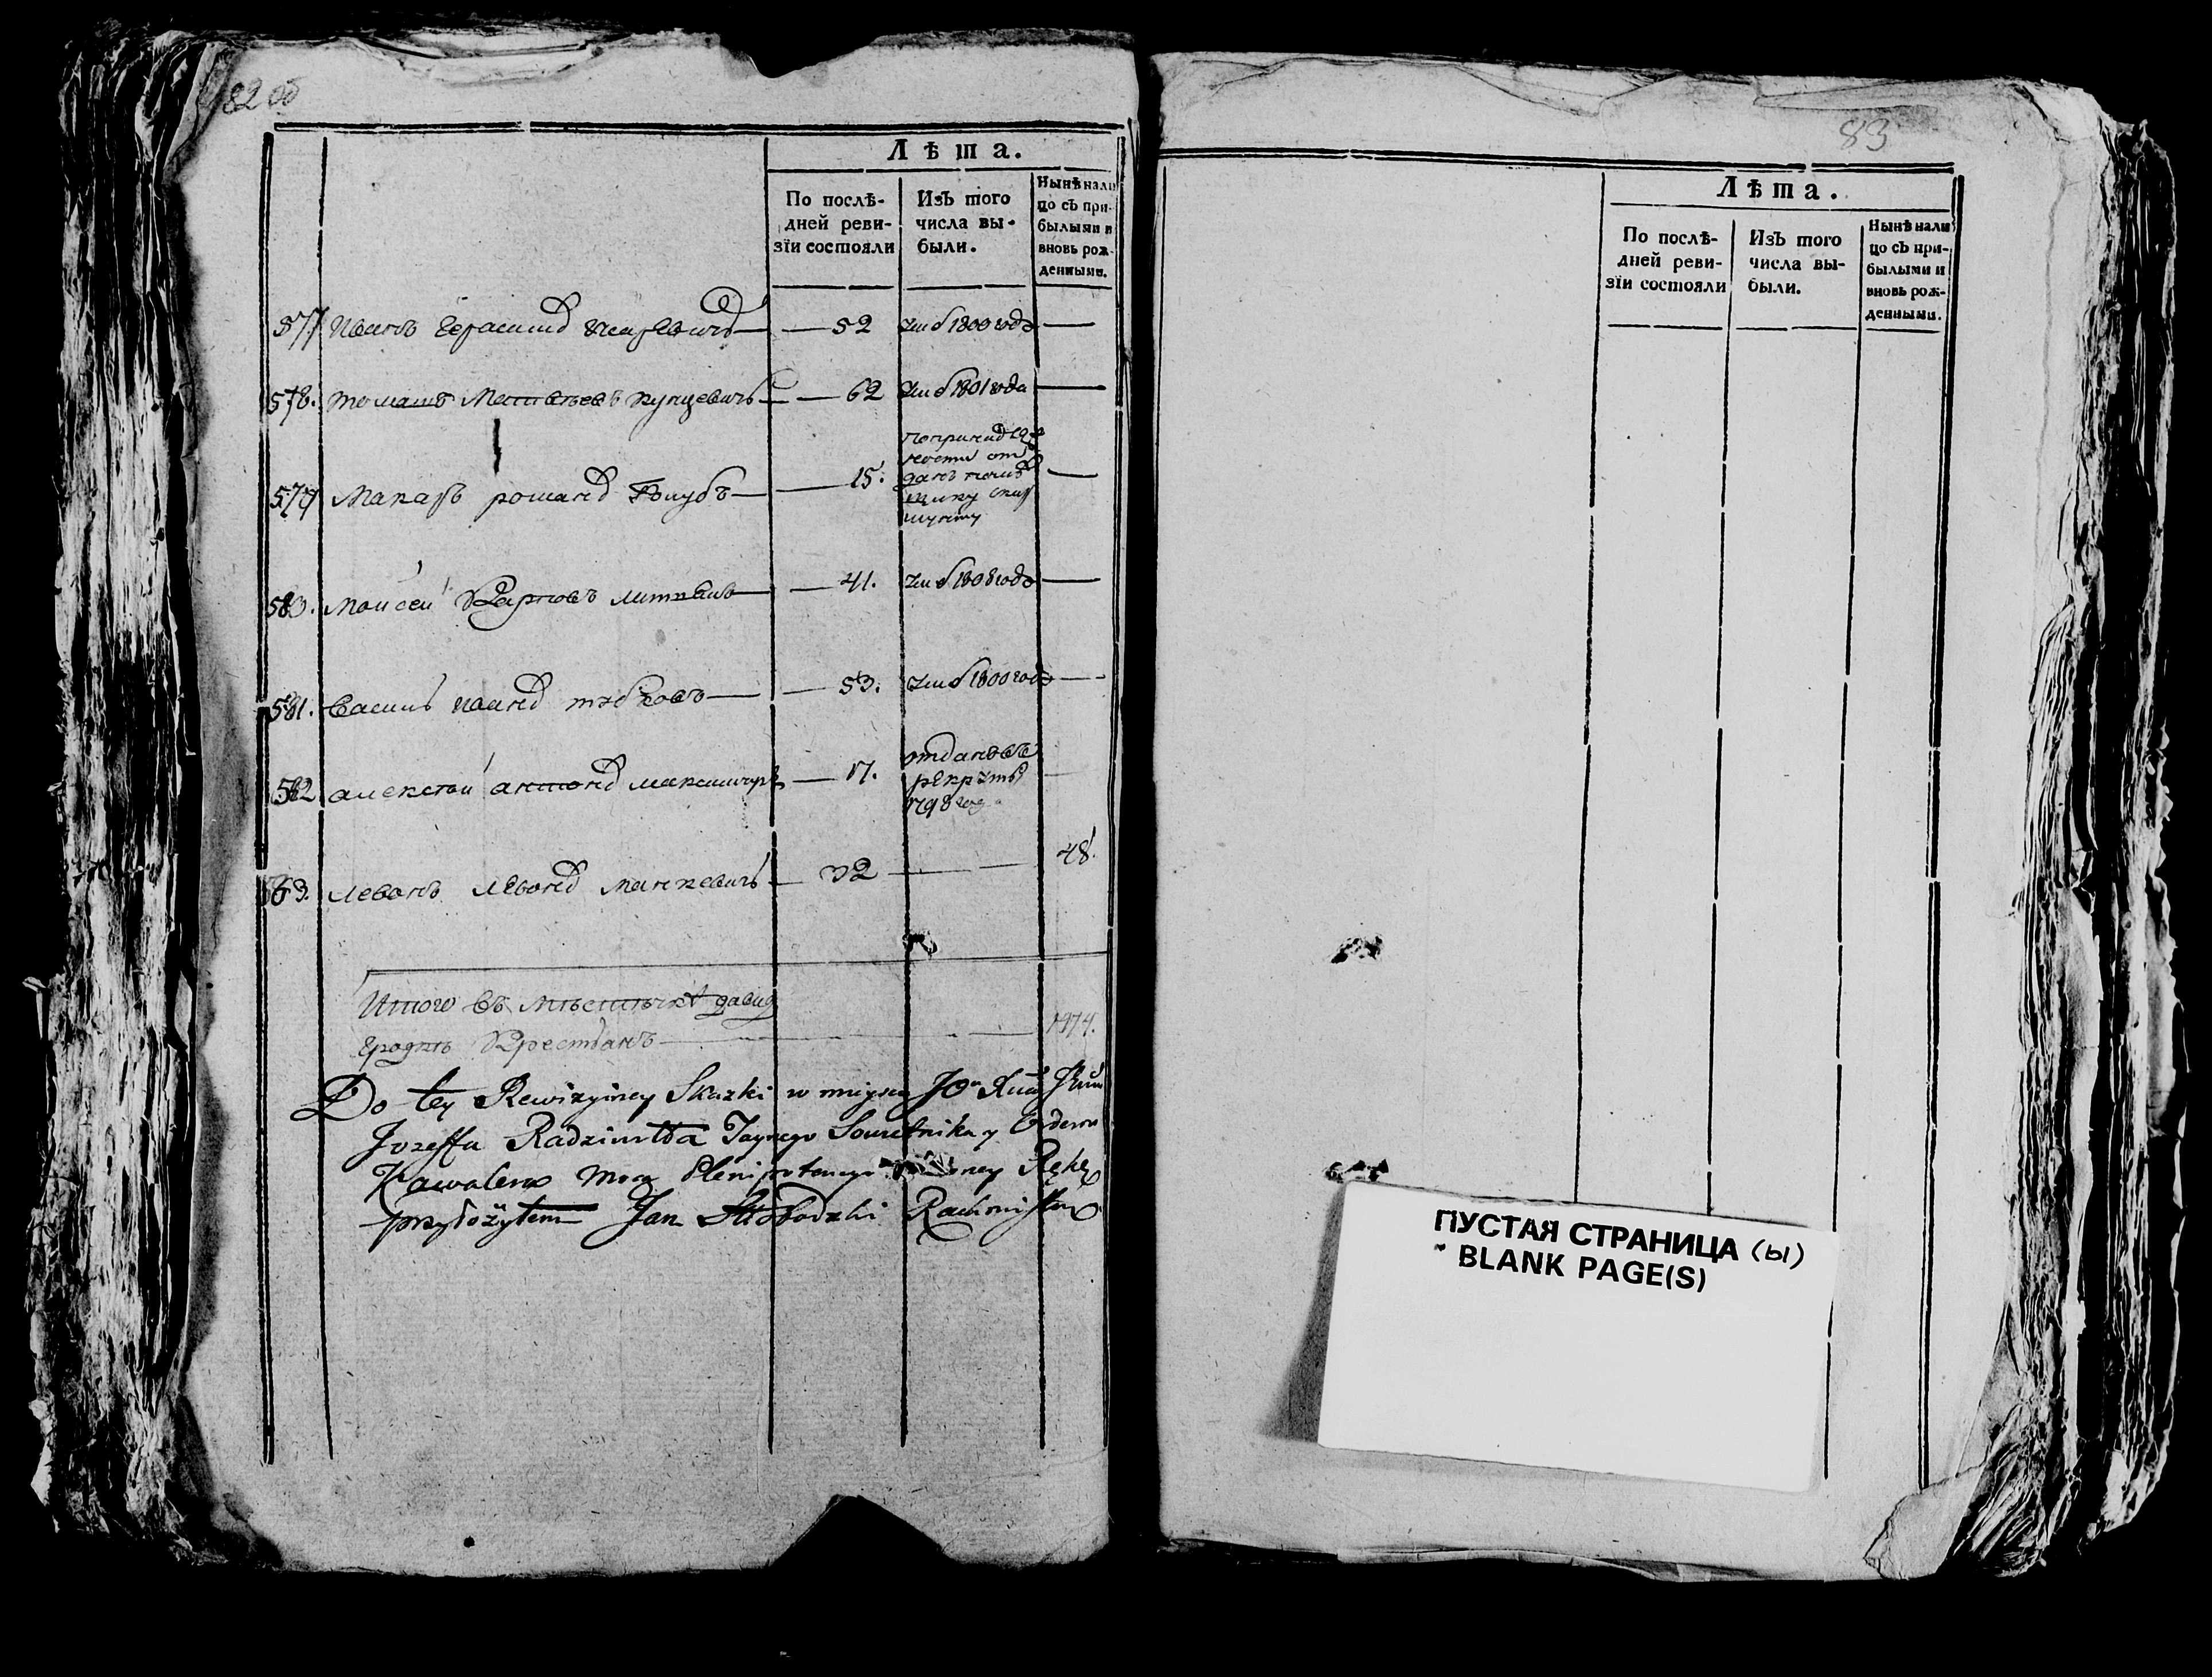 82 об
Лѣта.
По послѣ-
дней реви-
зїи состояли
Изъ того
числа вы-
были.
Нынѣ нали
цо съ при-
былыми и
вновь рож-
денными.
577 Иванъ Герасимов — 52 умеръ 1800 года —
578. томашъ Матвѣевъ куцевичъ — 62 умеръ 1801 года —
579 Макаръ романов Голубъ — 15. —
580. Моисеи Карповъ литвинъ — 41. умеръ 1808 года —
581. Василь иванов — 53. умеръ 1800 года —
582 алексѣи антонов — 17. отданъ въ
рекруты
1798 год
583. леванъ левонов манкевичъ — 32 — 48.
Итого въ мѣстечкѣ давид
градкѣ крестьянъ — 1974.
Do tey Rewizyiney Skazki w mieyscu JO
Jozeffa Radziwiłła Taynego Sowietnika y Orderow
Kawalera mocą Plenipotencyi Rękę
przyłożyłem Jan
83
Лѣта.
По послѣ-
дней реви-
зїи состояли
Изъ того
числа вы-
были.
Нынѣ нали
цо съ при-
былыми и
вновь рож-
денными.
ПУСТАЯ СТРАНИЦА (Ы)
BLANK PAGE(S)